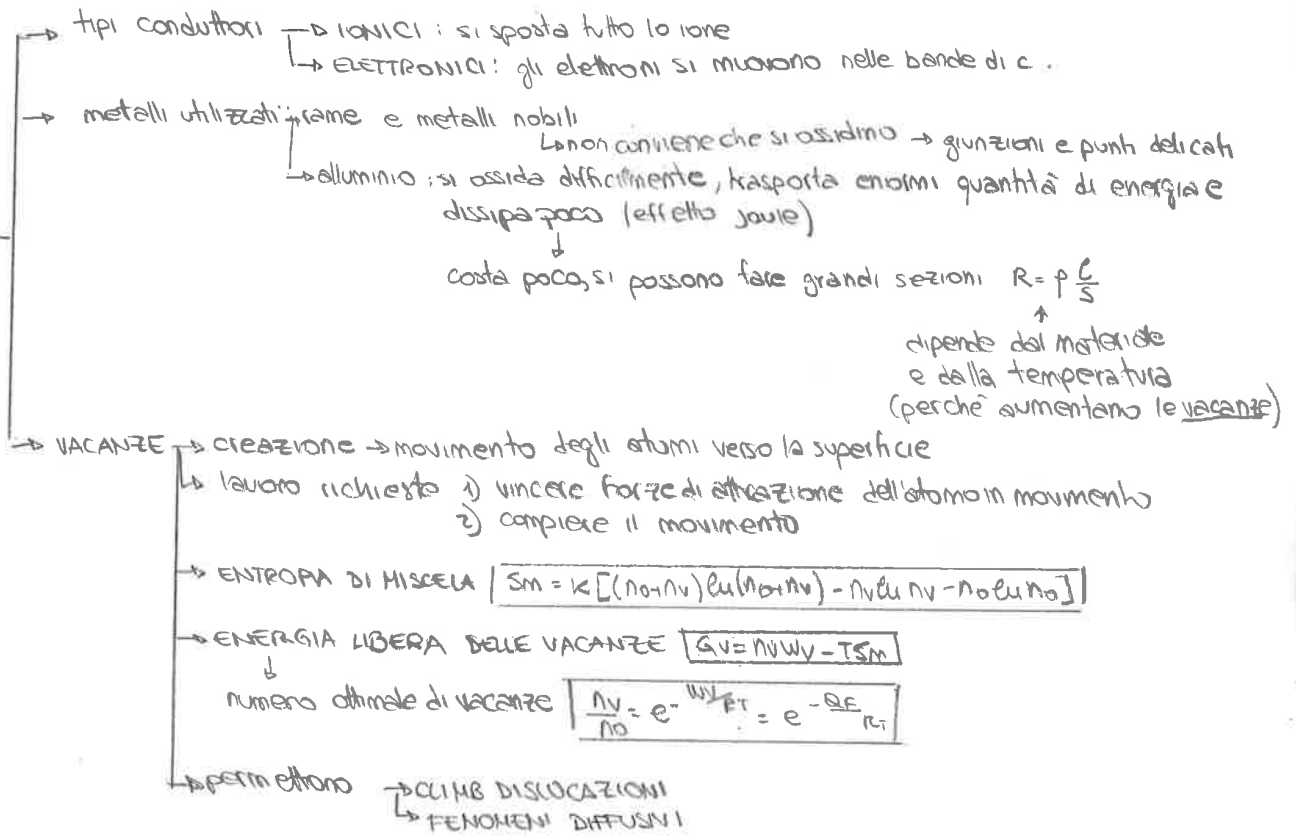 → tipi conduttori → IONICI : si sposta tutto lo ione
→ ELETTRONICI: gli elettroni si muovono nelle bande di c.
→ metalli utilizzati: rame e metalli nobili
↳ non conviene che si ossidino → giunzioni e punti delicati
→ alluminio : si ossida difficilmente, trasporta enormi quantità di energia e
dissipa poco (effetto Joule)
↓
costa poco, si possono fare grandi sezioni R = ρ l/S
↑
dipende dal materiale
e dalla temperatura
(perché aumentano le vacanze)
→ VACANZE → creazione → movimento degli atomi verso la superficie
↳ lavoro richiesto 1) vincere forze di attrazione dell'atomo in movimento
2) compiere il movimento
→ ENTROPIA DI MISCELA Sm = K[(no+nv)ln(no+nv) - nv ln nv - no ln no]
→ ENERGIA LIBERA DELLE VACANZE Gv = nvWv - TSm
↓
numero ottimale di vacanze nv/no = e^-Wv/KT = e^-QF/RT
→ permettono → CLIMB DISLOCAZIONI
↳ FENOMENI DIFFUSIVI